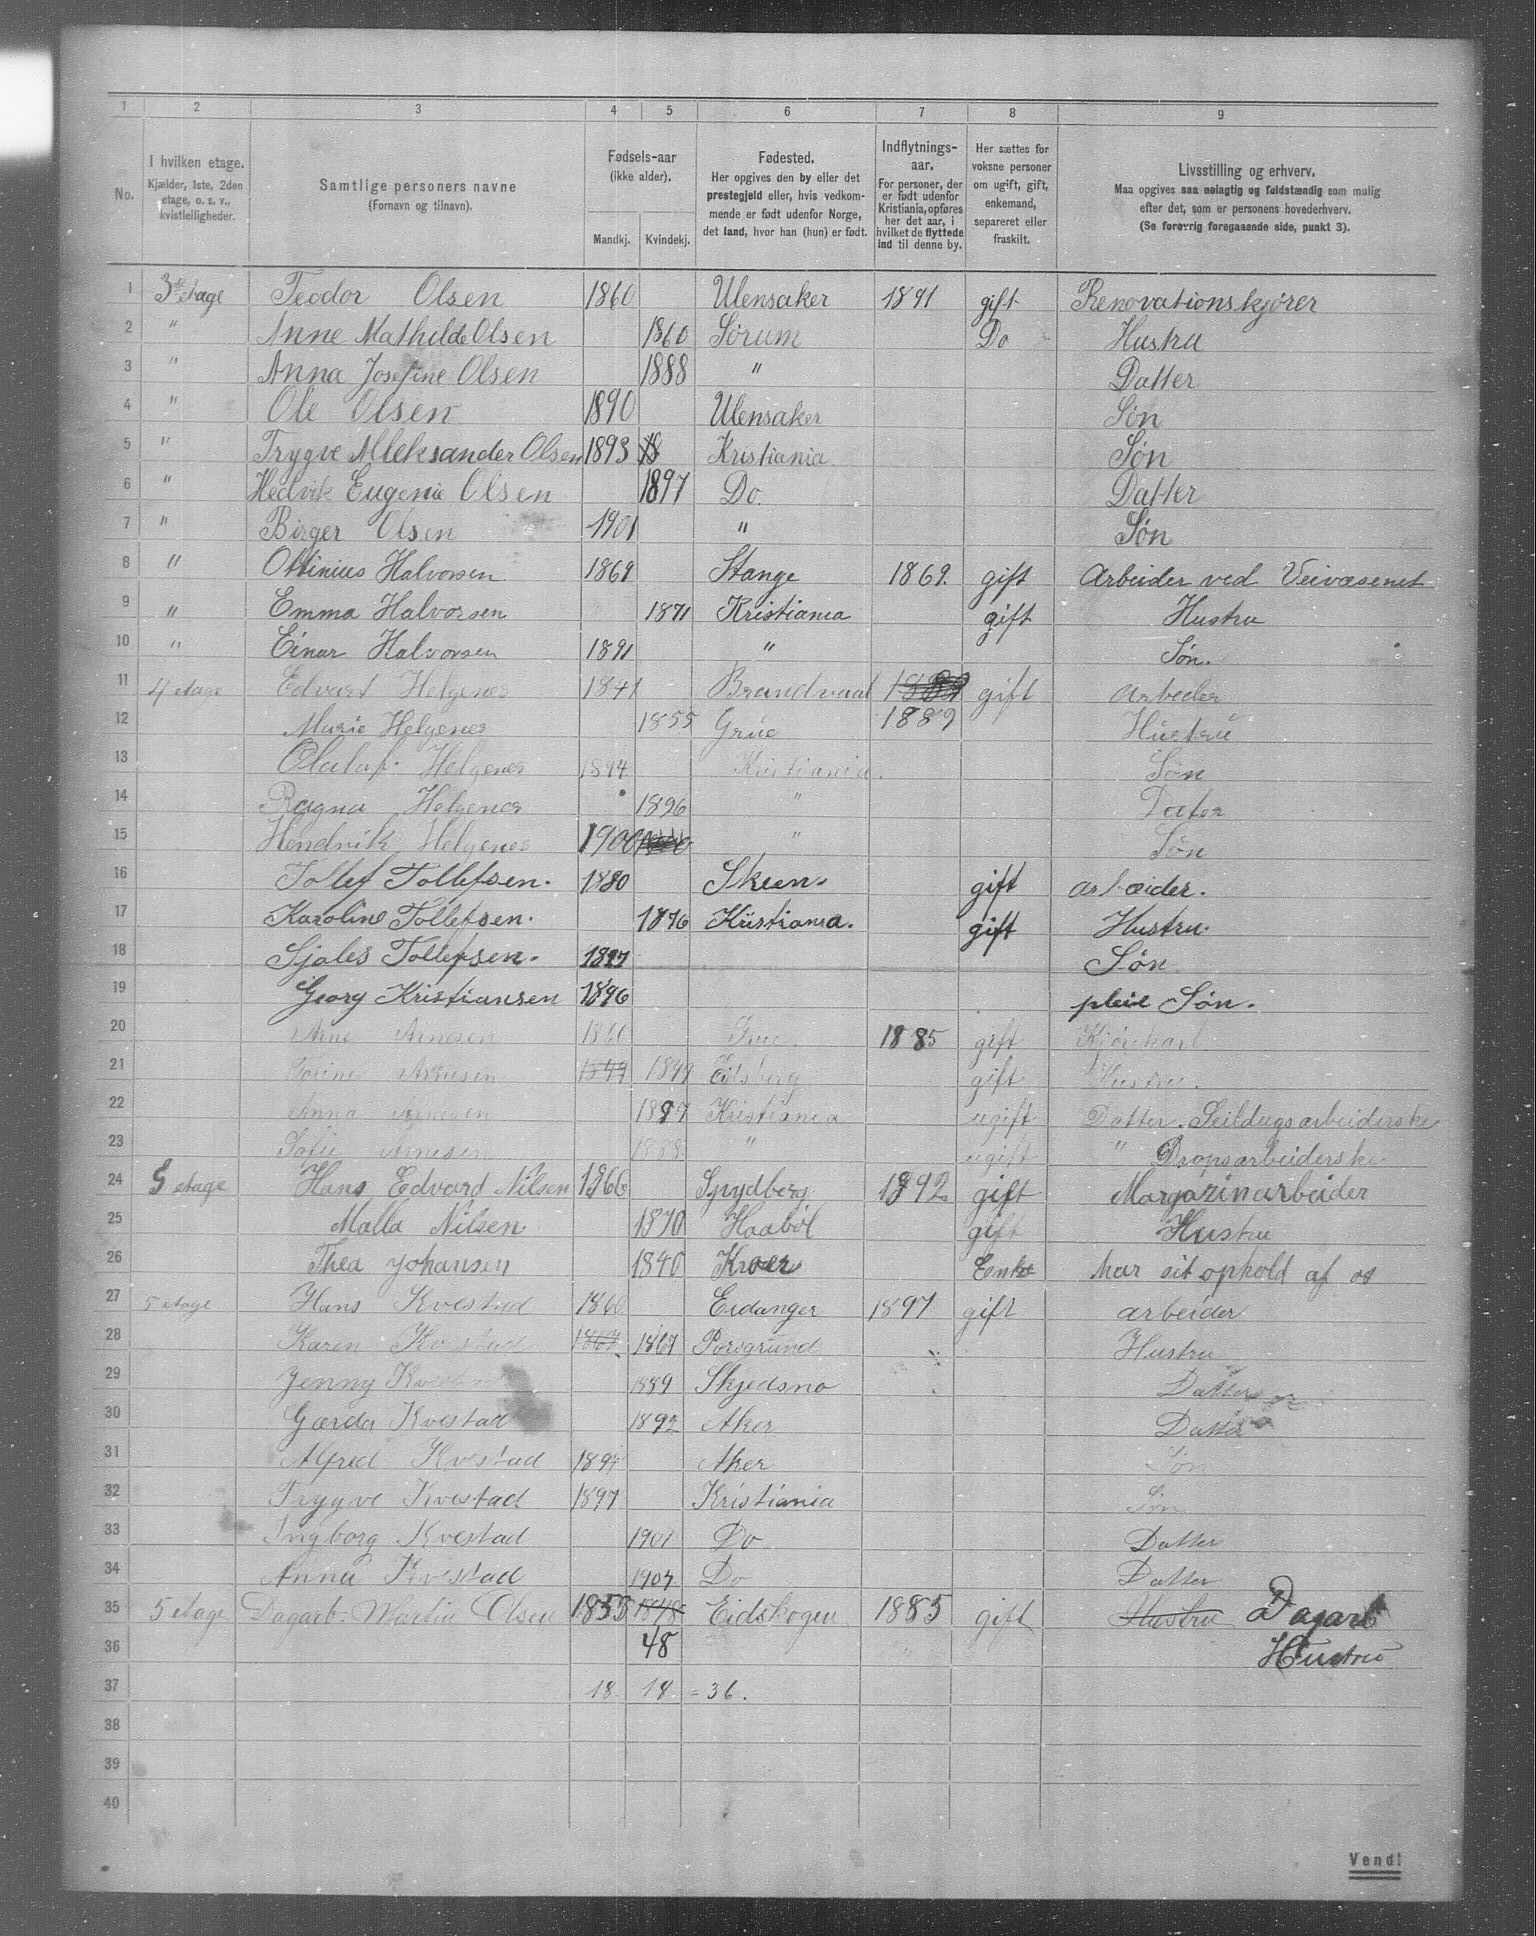 1 2 3 4 5 6 7 8 9
No. I hvilken etage. Kjælder, 1ste, 2den etage, o. s. v., kvistleiligheder. Samtlige personers navne (Fornavn og tilnavn). Fødsels-aar (ikke alder). Mandkj. Kvindekj. Fødested. Her opgives den by eller det prestegjeld eller, hvis vedkommende er født udenfor Norge, det land, hvor han (hun) er født. Indflytnings-aar. For personer, der er født udenfor Kristiania, opføres her det aar, i hvilket de flyttede ind til denne by. Her sættes for voksne personer om ugift, gift, enkemand, separeret eller fraskilt. Livsstilling og erhverv. Maa opgives saa nøiagtig og fuldstændig som mulig efter det, som er personens hovederhverv. (Se forøvrig foregaaende side, punkt 3).
1 3de etage Teodor Olsen 1860 Ulensaker 1891 gift Renovationskjører
2 " Anne Mathilde Olsen 1860 Sørum Do Hustru
3 " Anna Josefine Olsen 1888 " Datter
4 " Ole Olsen 1890 Ulensaker Søn
5 " Trygve Alleksander Olsen 1893 18 Kristiania Søn
6 " Hedvik Eugenie Olsen 1897 Do. Datter
7 " Birger Olsen 1901 " Søn
8 " Ottinius Halvorsen 1869 Stange 1869. gift Arbeider ved Veivæsenet
9 " Emma Halvorsen 1871 Kristiania gift Hustru
10 " Einar Halvorsen 1891 " Søn.
11 4 etage Edvart Helgenes 1841 Brandvaal gift arbeder
12 Marie Helgenes 1855 Grue 1889 Hustru
13 Olaf Helgenes 1894 Kristiania. Søn
14 Ragna Helgenes 1896 " Dater
15 Hendrik Helgenes 1900 " Søn
16 Tollef Tollefsen. 1880 Skien. gift arbeider.
17 Karoline Tollefsen. 1876 Kristiania. gift Hustru.
18 Sjales Tollefsen. 1897 Søn
19 Georg Kristiansen 1896 pleie Søn.
20 Arne Arnesen 1860 1885 gift Kjørekarl
21 Arnesen 1849 1849 Eidsberg gift Hustru.
22 Anna Arnesen 1887 Kristiania ugift Datter. Seildugsarbeiderske
23 Sofie Arnesen 1888 " ugift " Dropsarbeiderske
24 5 etage Hans Edvard Nilsen 1866 Spydberg 1892 gift Margazinarbeider
25 Malla Nilsen 1870 Haabøl gift Hustru
26 Thea Johansen 1840 Kroer Eenke har sit ophold af os
27 5 etage Hans Kvestad 1860 Eidanger 1897 gift arbeider
28 Karen Kvestad 1867 1867 Porsgrund " Hustru
29 Jenny Kvestad 1889 Skjedsmo Datter
30 Gærda Kvestad 1892 Aker Datter
31 Alfred Kvestad 1894 Aker Søn
32 Trygve Kvestad 1897 Kristiania Søn
33 Ingborg Kvestad 1901 Do Datter
34 Anna Kvestad 1904 Do Datter
35 5 etage Dagarb. Martin Olsen 1853 1848 Eidskogen 1885 gift Hustru Dagarb
36 48 Hustru
37 18. 18. = 36.
38
39
40
Vend!